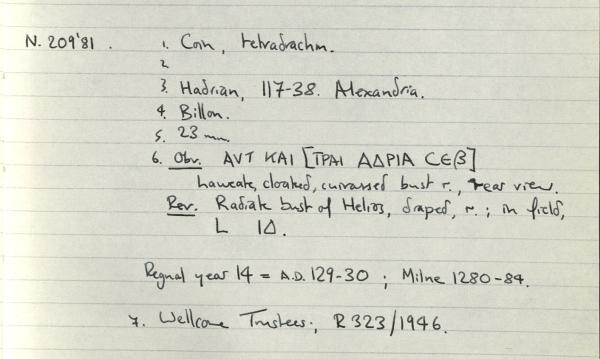 N. 209'81. 1. Coin, tetradrachm.
2
3. Hadrian, 117-38. Alexandria.
4. Billon.
5. 23 mm
6. Obv. ΑVΤ ΚΑΙ [ΤΡΑΙ ΑΔΡΙΑ CΕβ]
Laureate, cloaked, cuirassed bust r., rear view.
Rev. Radiate bust of Helios, draped, r.; in field,
L ΙΔ.
Regnal year 14 = A.D. 129-30; Milne 1280-84.
7. Wellcome Trustees; R 323/1946.